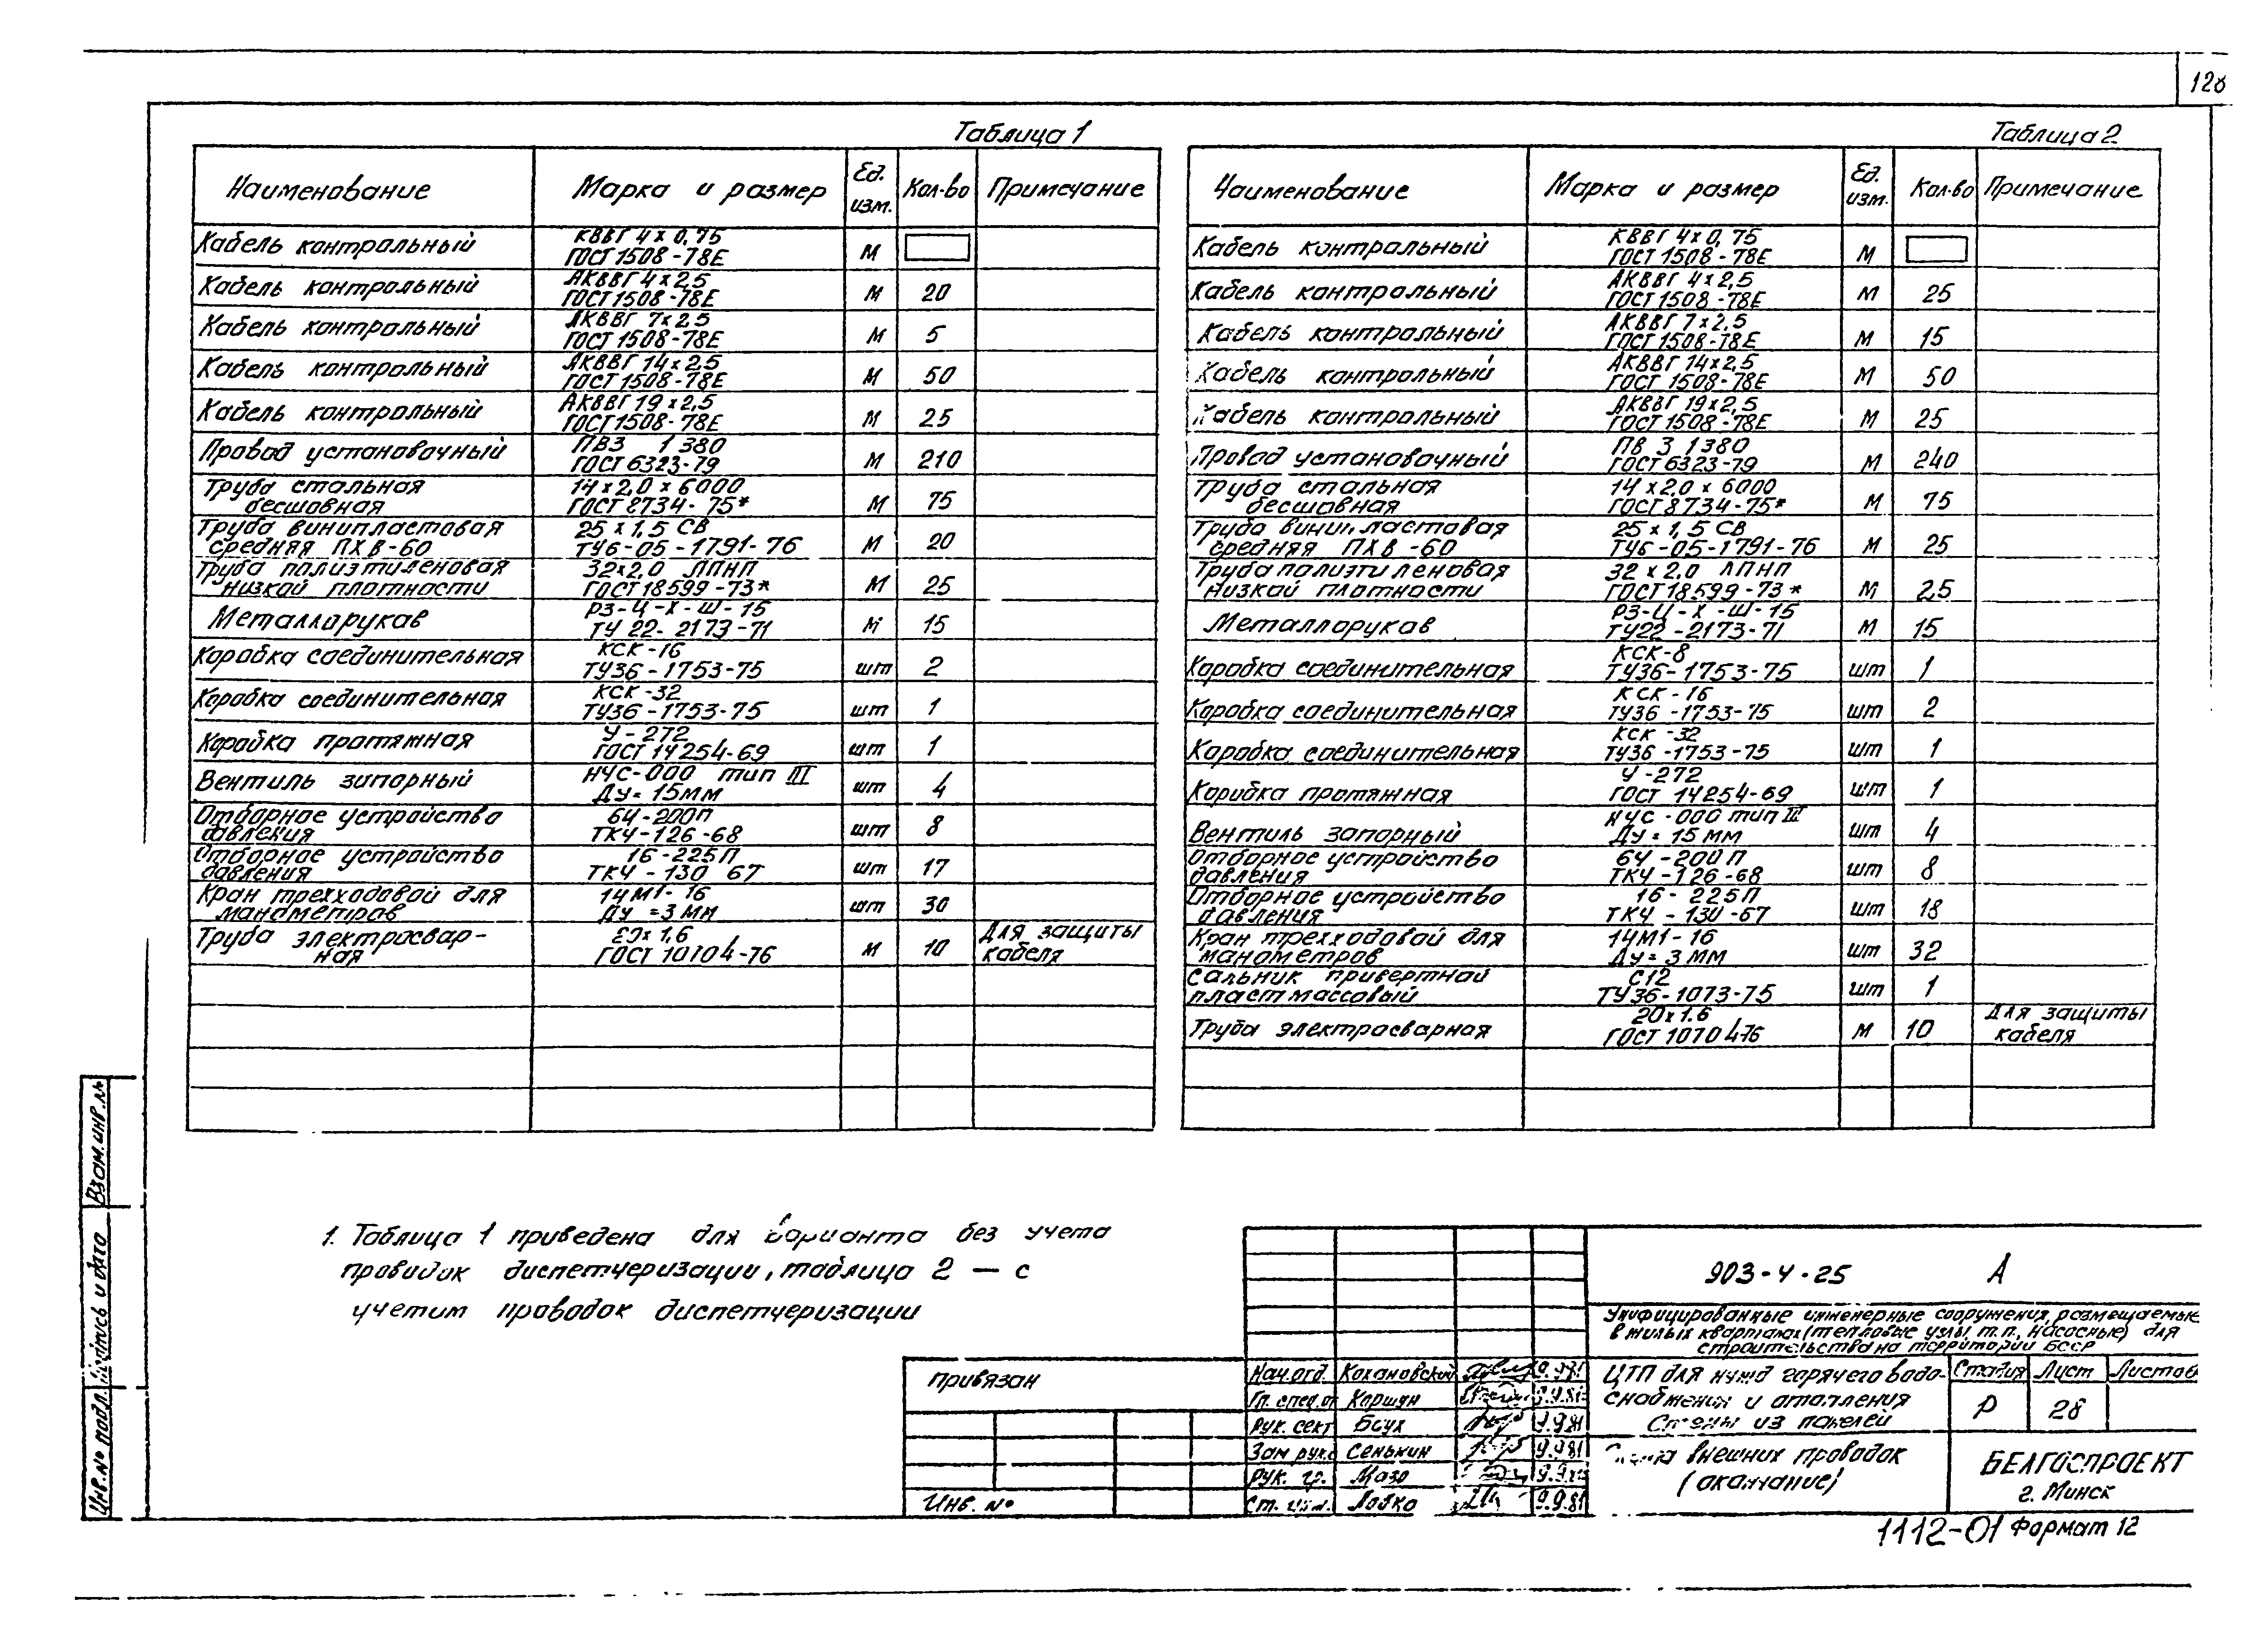 128
Таблица 1
Наименование Марка и размер Ед. изм. Кол-во Примечание
Кабель контрольный КВВГ 4х0,75 ГОСТ 1508-78Е м
Кабель контрольный АКВВГ 4х2,5 ГОСТ 1508-78Е м 20
Кабель контрольный АКВВГ 7х2,5 ГОСТ 1508-78Е м 5
Кабель контрольный АКВВГ 14х2,5 ГОСТ 1508-78Е м 50
Кабель контрольный АКВВГ 19х2,5 ГОСТ 1508-78Е м 25
Провод установочный ПВ3 1 380 ГОСТ 6323-79 м 210
Труба стальная бесшовная 14х2,0х6000 ГОСТ 8734-75* м 75
Труба винипластовая средняя ПХВ-60 25х1,5 СВ ТУ6-05-1791-76 м 20
Труба полиэтиленовая низкой плотности 32х2,0 ЛПНП ГОСТ 18599-73* м 25
Металлорукав РЗ-Ц-Х-Ш-15 ТУ 22-2173-71 м 15
Коробка соединительная КСК-16 ТУ36-1753-75 шт 2
Коробка соединительная КСК-32 ТУ36-1753-75 шт 1
Коробка протяжная У-272 ГОСТ 14254-69 шт 1
Вентиль запорный НЧС-000 тип III Ду=15мм шт 4
Отборное устройство давления 64-200П ТКЧ-126-68 шт 8
Отборное устройство давления 16-225П ТКЧ-130 67 шт 17
Кран трехходовой для манометров 14М1-16 Ду=3мм шт 30
Труба электросвар-ная 20х1,6 ГОСТ 10704-76 м 10 Для защиты кабеля
Таблица 2
Наименование Марка и размер Ед. изм. Кол-во Примечание
Кабель контрольный КВВГ 4х0,75 ГОСТ 1508-78Е м
Кабель контрольный АКВВГ 4х2,5 ГОСТ 1508-78Е м 25
Кабель контрольный АКВВГ 7х2,5 ГОСТ 1508-78Е м 15
Кабель контрольный АКВВГ 14х2,5 ГОСТ 1508-78Е м 50
Кабель контрольный АКВВГ 19х2,5 ГОСТ 1508-78Е м 25
Провод установочный ПВ 3 1 380 ГОСТ 6323-79 м 240
Труба стальная бесшовная 14х2,0х6000 ГОСТ 8734-75* м 75
Труба винипластовая средняя ПХВ-60 25х1,5 СВ ТУ6-05-1791-76 м 25
Труба полиэтиленовая низкой плотности 32х2,0 ЛПНП ГОСТ 18599-73* м 25
Металлорукав РЗ-Ц-Х-Ш-15 ТУ22-2173-71 м 15
Коробка соединительная КСК-8 ТУ36-1753-75 шт 1
Коробка соединительная КСК-16 ТУ36-1753-75 шт 2
Коробка соединительная КСК-32 ТУ36-1753-75 шт 1
Коробка протяжная У-272 ГОСТ 14254-69 шт 1
Вентиль запорный НЧС-000 тип III Ду=15мм шт 4
Отборное устройство давления 64-200П ТКЧ-126-68 шт 8
Отборное устройство давления 16-225П ТКЧ-130-67 шт 18
Кран трехходовой для манометров 14М1-16 Ду=3мм шт 32
Сальник привертной пластмассовый С12 ТУ36-1073-75 шт 1
Труба электросварная 20х1.6 ГОСТ 10704-76 м 10 Для защиты кабеля
1. Таблица 1 приведена для варианта без учета
проводок диспетчеризации, таблица 2 — с
учетим проводок диспетчеризации
Взам.инв.№
Подпись и дата
Инв.№ подл.
Привязан
Инв. №
903-4-25 А
Унифицированные инженерные сооружения, размещаемые
в жилых кварталах (тепловые узлы, т.п., насосные) для
строительства на территории БССР
Нач.отд. Кохановский 9.9.81
Гл. спец.от Коршун 9.9.81
Рук. сект 9.9.81
Зам рук. Сенькин 9.9.81
Рук. гр. Мазо
Ст. инж. Лобко 9.9.81
ЦТП для нужд горячего водо-
снабжения и отопления
Стены из панелей
Стадия Лист Листов
Р 28
Схема внешних проводок
(окончание)
БЕЛГОСПРОЕКТ
г. Минск
1112-01 Формат 12